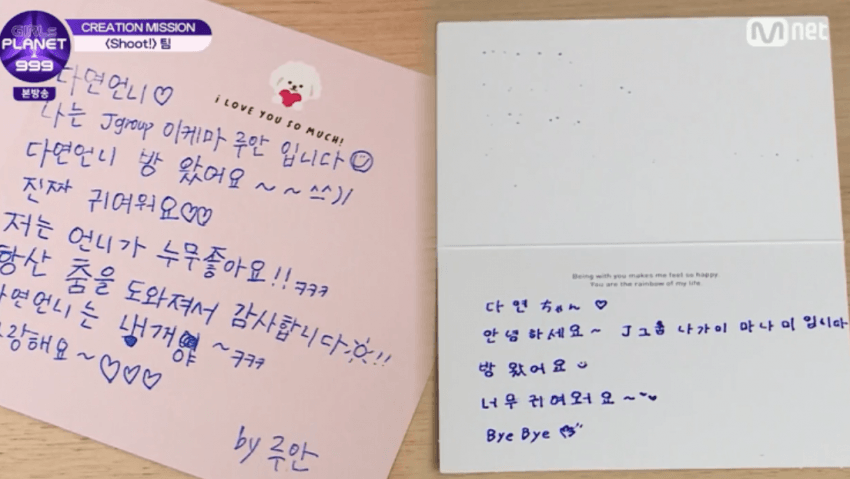 GIRLS
PLANET
999
본방송
CREATION MISSION
<Shoot!> 팀
Mnet
다연언니♡
나는 Jgroup 이케마 루안 입니다☺
다연언니 방 왔어요~~^^))
진짜 귀여워요♡♡
저는 언니가 누무좋아요!!ㅋㅋㅋ
항산 춤을 도와져서 감사합니다☼!!
다연언니는 ~ㅋㅋㅋ
랑해요~♡♡♡
by 루안
I LOVE YOU SO MUCH!
Being with you makes me feel so happy
You are the rainbow of my life.
다연 ちゃん ♡
안녕하세요~ J그룹 나가이 마나미 입니다
방 왔어요
너무 귀여워요~
Bye Bye